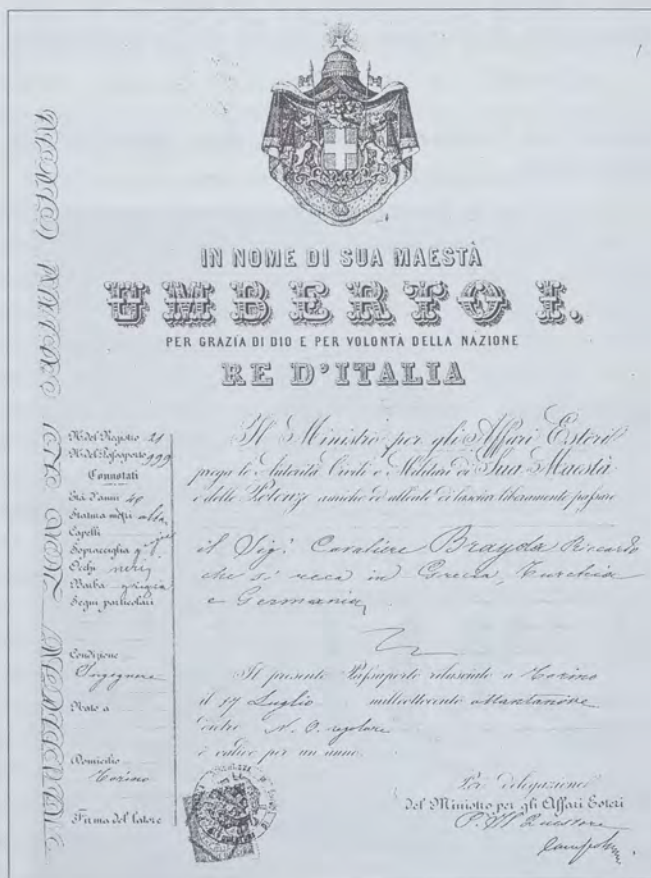 1
IN NOME DI SUA MAESTÀ
UMBERTO I.
PER GRAZIA DI DIO E PER VOLONTÀ DELLA NAZIONE
RE D'ITALIA
N. del Registro 21
N. del Passaporto 999
Connotati
Età d'anni 40
Statura metri alta
Capelli
Sopracciglia
Occhi neri
Barba grigia
Segni particolari
Condizione
Ingegnere
Nato a
Domicilio
Torino
Firma del latore
Il Ministro per gli Affari Esteri
prega le Autorità Civili e Militari di Sua Maestà
e delle Potenze amiche ed alleate di lasciar liberamente passare
il Sig. Cavaliere Brayda Riccardo
che si reca in Grecia, Turchia
e Germania,
Il presente Passaporto rilasciato a Torino
il 17 Luglio milleottocento ottantanove
dietro N. O. regolare
è valido per un anno.
Per delegazione
del Ministro per gli Affari Esteri
P. Il Questore